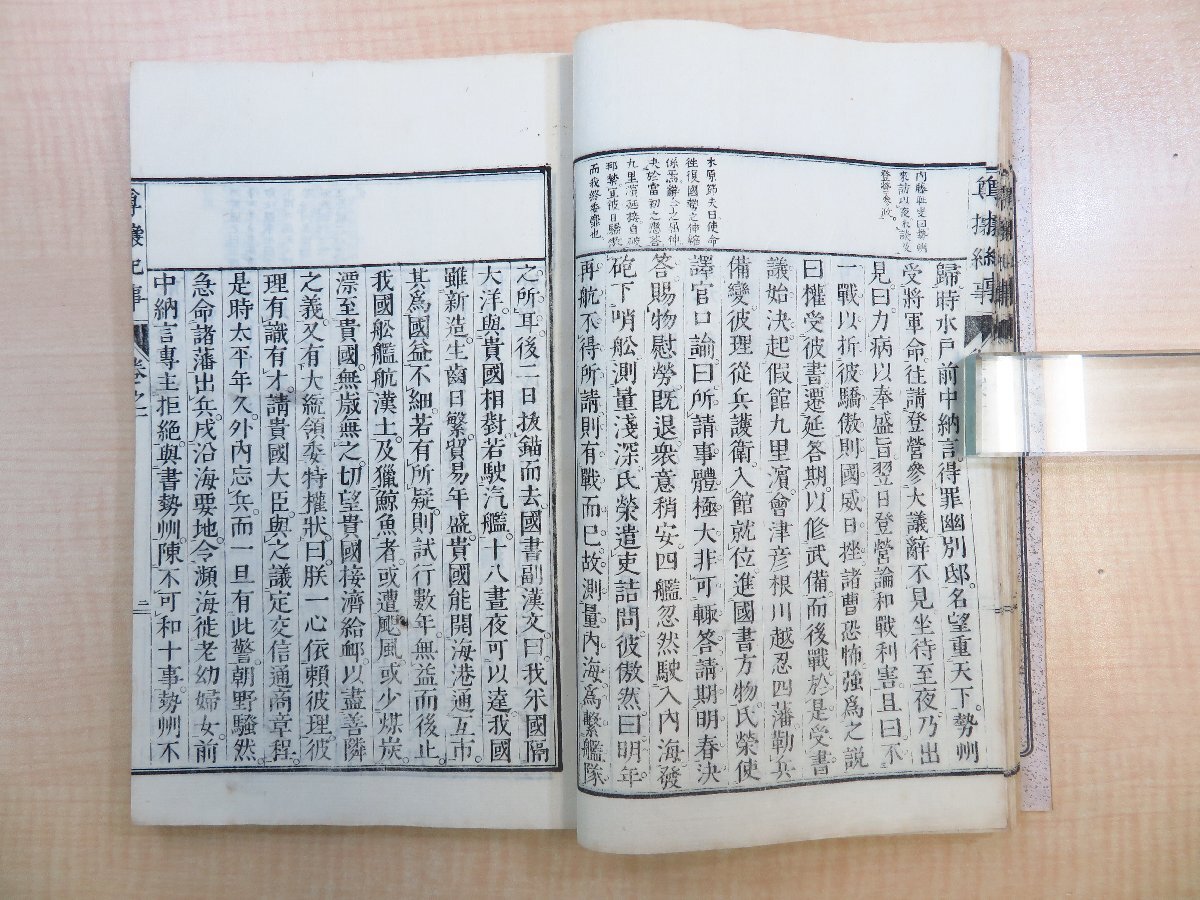 歸時水戶前中納言得罪幽別邸。名望重天下。勢州
受將軍命。往請登營參大議。辭不見。坐待至夜。乃出
見曰。力病以奉盛旨。翌日登營論和戰利害。且曰。不
一戰以折彼驕傲。則國威日挫。諸曹恐怖。強爲之說
曰。權受彼書。遷延答期。以修武備。而後戰。於是受書
議始決。起假館九里濱。會津彥根川越忍四藩勒兵
備變。彼理從兵護衛。入館就位。進國書方物。氏榮使
譯官口諭曰。所請事體極大。非可輙答。請期明春決
答。賜物慰勞。既退。衆意稍安。四艦忽然駛入內海。發
砲下哨舩。測量淺深。氏榮遣吏詰問。彼傲然曰。明年
再航。不得所請。則有戰而已。故測量內海。爲繫艦隊
木原節夫曰使命
往復國勢之伸縮
九里濱延接自破
而我終委靡也
之所耳。後二日拔錨而去。國書副漢文曰。我米國隔
大洋與貴國相對。若駛汽艦。十八晝夜可以達。我國
雖新造。生齒日繁。貿易年盛。貴國能開海港通互市。
其爲國益不細。若有所疑。則試行數年。無益而後止。
我國舩艦航漢土及獵鯨魚者。或遭颶風。或少煤炭。
漂至貴國。無歲無之。切望貴國接濟給邺。以盡善隣
之義。又有大統領委特權狀。曰。朕一心依賴彼理。彼
理有識有才。請貴國大臣與之議定交信通商章程。
是時太平年久。外內忘兵。而一旦有此警。朝野騷然。
急命諸藩出兵。戍沿海要地。令瀕海徙老幼婦女。前
中納言專主拒絕。與書勢州。陳不可和十事。勢州不
尊攘紀事
卷之一
二